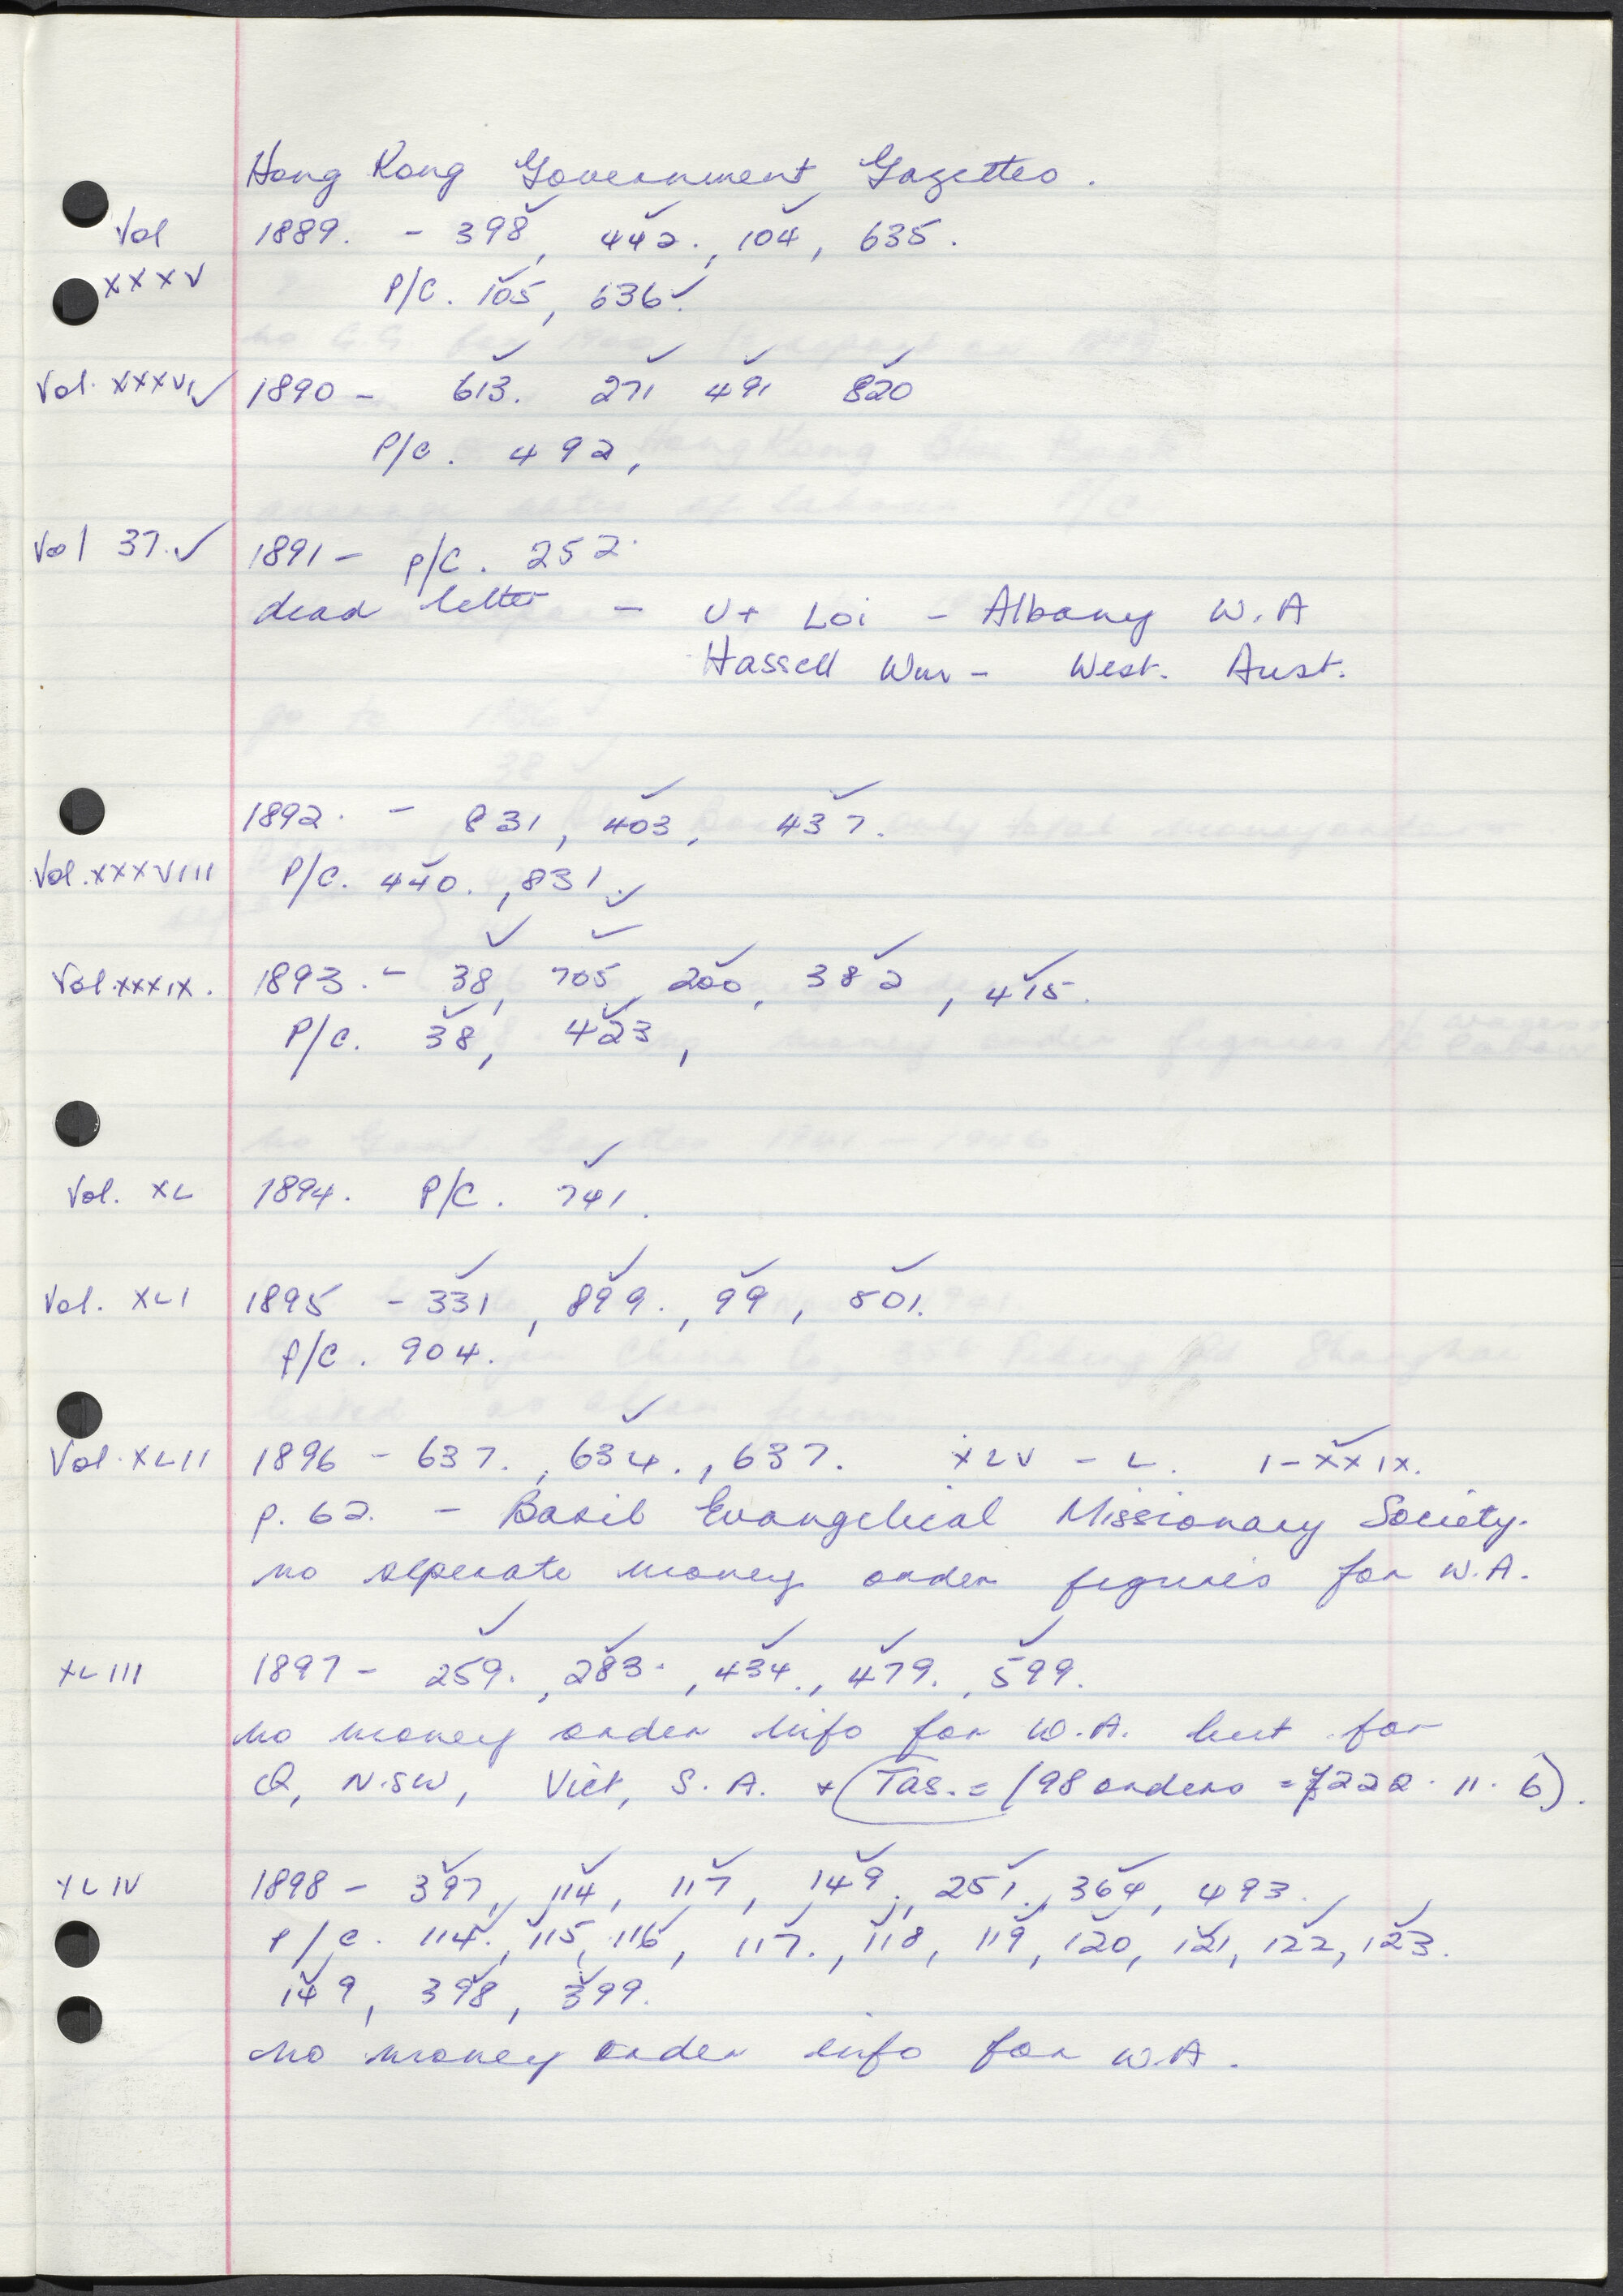 Hong Kong Government Gazettes.
Vol XXXV 1889. - 398✓, 442✓., 104✓, 635.
P/C. 105✓, 636✓.
Vol. XXXVI✓ 1890 - 613✓. 271✓ 491✓ 820✓
P/C. 492,
Vol 37.✓ 1891 - P/C. 252.
dead letter - Ut Loi - Albany W.A
Hassell Wm - West. Aust.
1892. - 831, 403✓, 437✓.
Vol. XXXVIII P/C. 440✓., 831.✓
Vol. XXXIX. 1893. - 38✓, 705✓, 200✓, 382✓, 415✓.
P/C. 38✓, 423✓,
Vol. XL 1894. P/C. 741✓.
Vol. XLI 1895 - 331✓, 899✓., 99✓, 501✓.
P/C. 904.
Vol. XLII 1896 - 637., 634✓., 637. XLV - L. 1 - XXIX✓.
p. 62. - Basil Evangelical Missionary Society.
no seperate money order figures for W.A.
XLIII 1897 - 259✓., 283✓., 434✓., 479✓., 599✓.
no money order info for W.A. but for
Q, N.SW, Vict, S.A. + (Tas. = (98 orders = £222. 11. 6).
XLIV 1898 - 397✓, 114✓, 117✓, 149✓., 251✓., 364✓, 493.
P/C. 114✓., 115✓, 116✓, 117✓., 118✓, 119✓, 120✓, 121✓, 122✓, 123✓.
149✓, 398✓, 399✓.
no money order info for W.A.